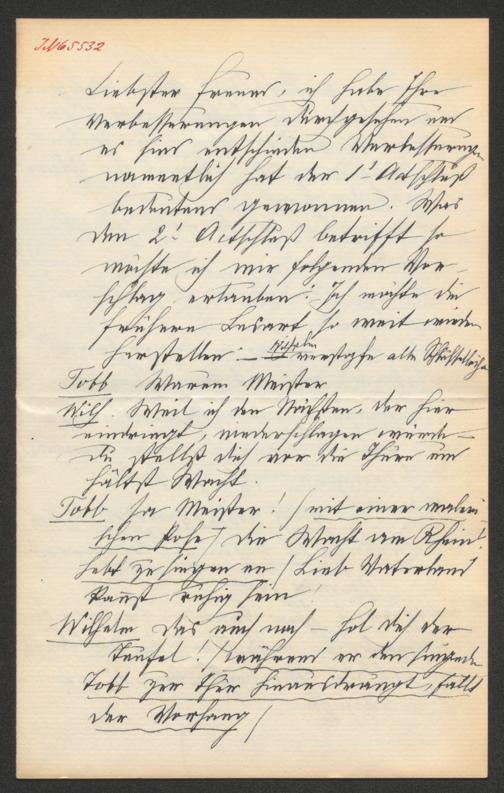 I.N 65532
Liebster Freund, ich habe Ihre
Verbesserungen durchgesehen und
es sind entschieden Verbesserungen
namentlich hat der 1t Actschluß
bedeutend gewonnen. Was
den 2t Actschluß betrifft so
möchte ich mir folgenden Vor-
schlag erlauben: Ich möchte die
frühere Lesart so weit wieder
herstellen: – Wilhelm verstopfe alle
Tobb Warum Meister
Wilh. Weil ich den Nächsten, der hier
eindringt, niederschlagen würde –
du stellst dich vor die Thüre und
hältst Wacht.
Tobb Ja Meister! / mit einer maleri
schen Pose / Die Wacht am Rhein!
hebt zu singen an / Lieb Vaterland
kannst ruhig sein!
Wilhelm das auch noch – hol dich der
Teufel! / während er den singenden
Tobb zur Thür hinausdrängt, fällt
der Vorhang /